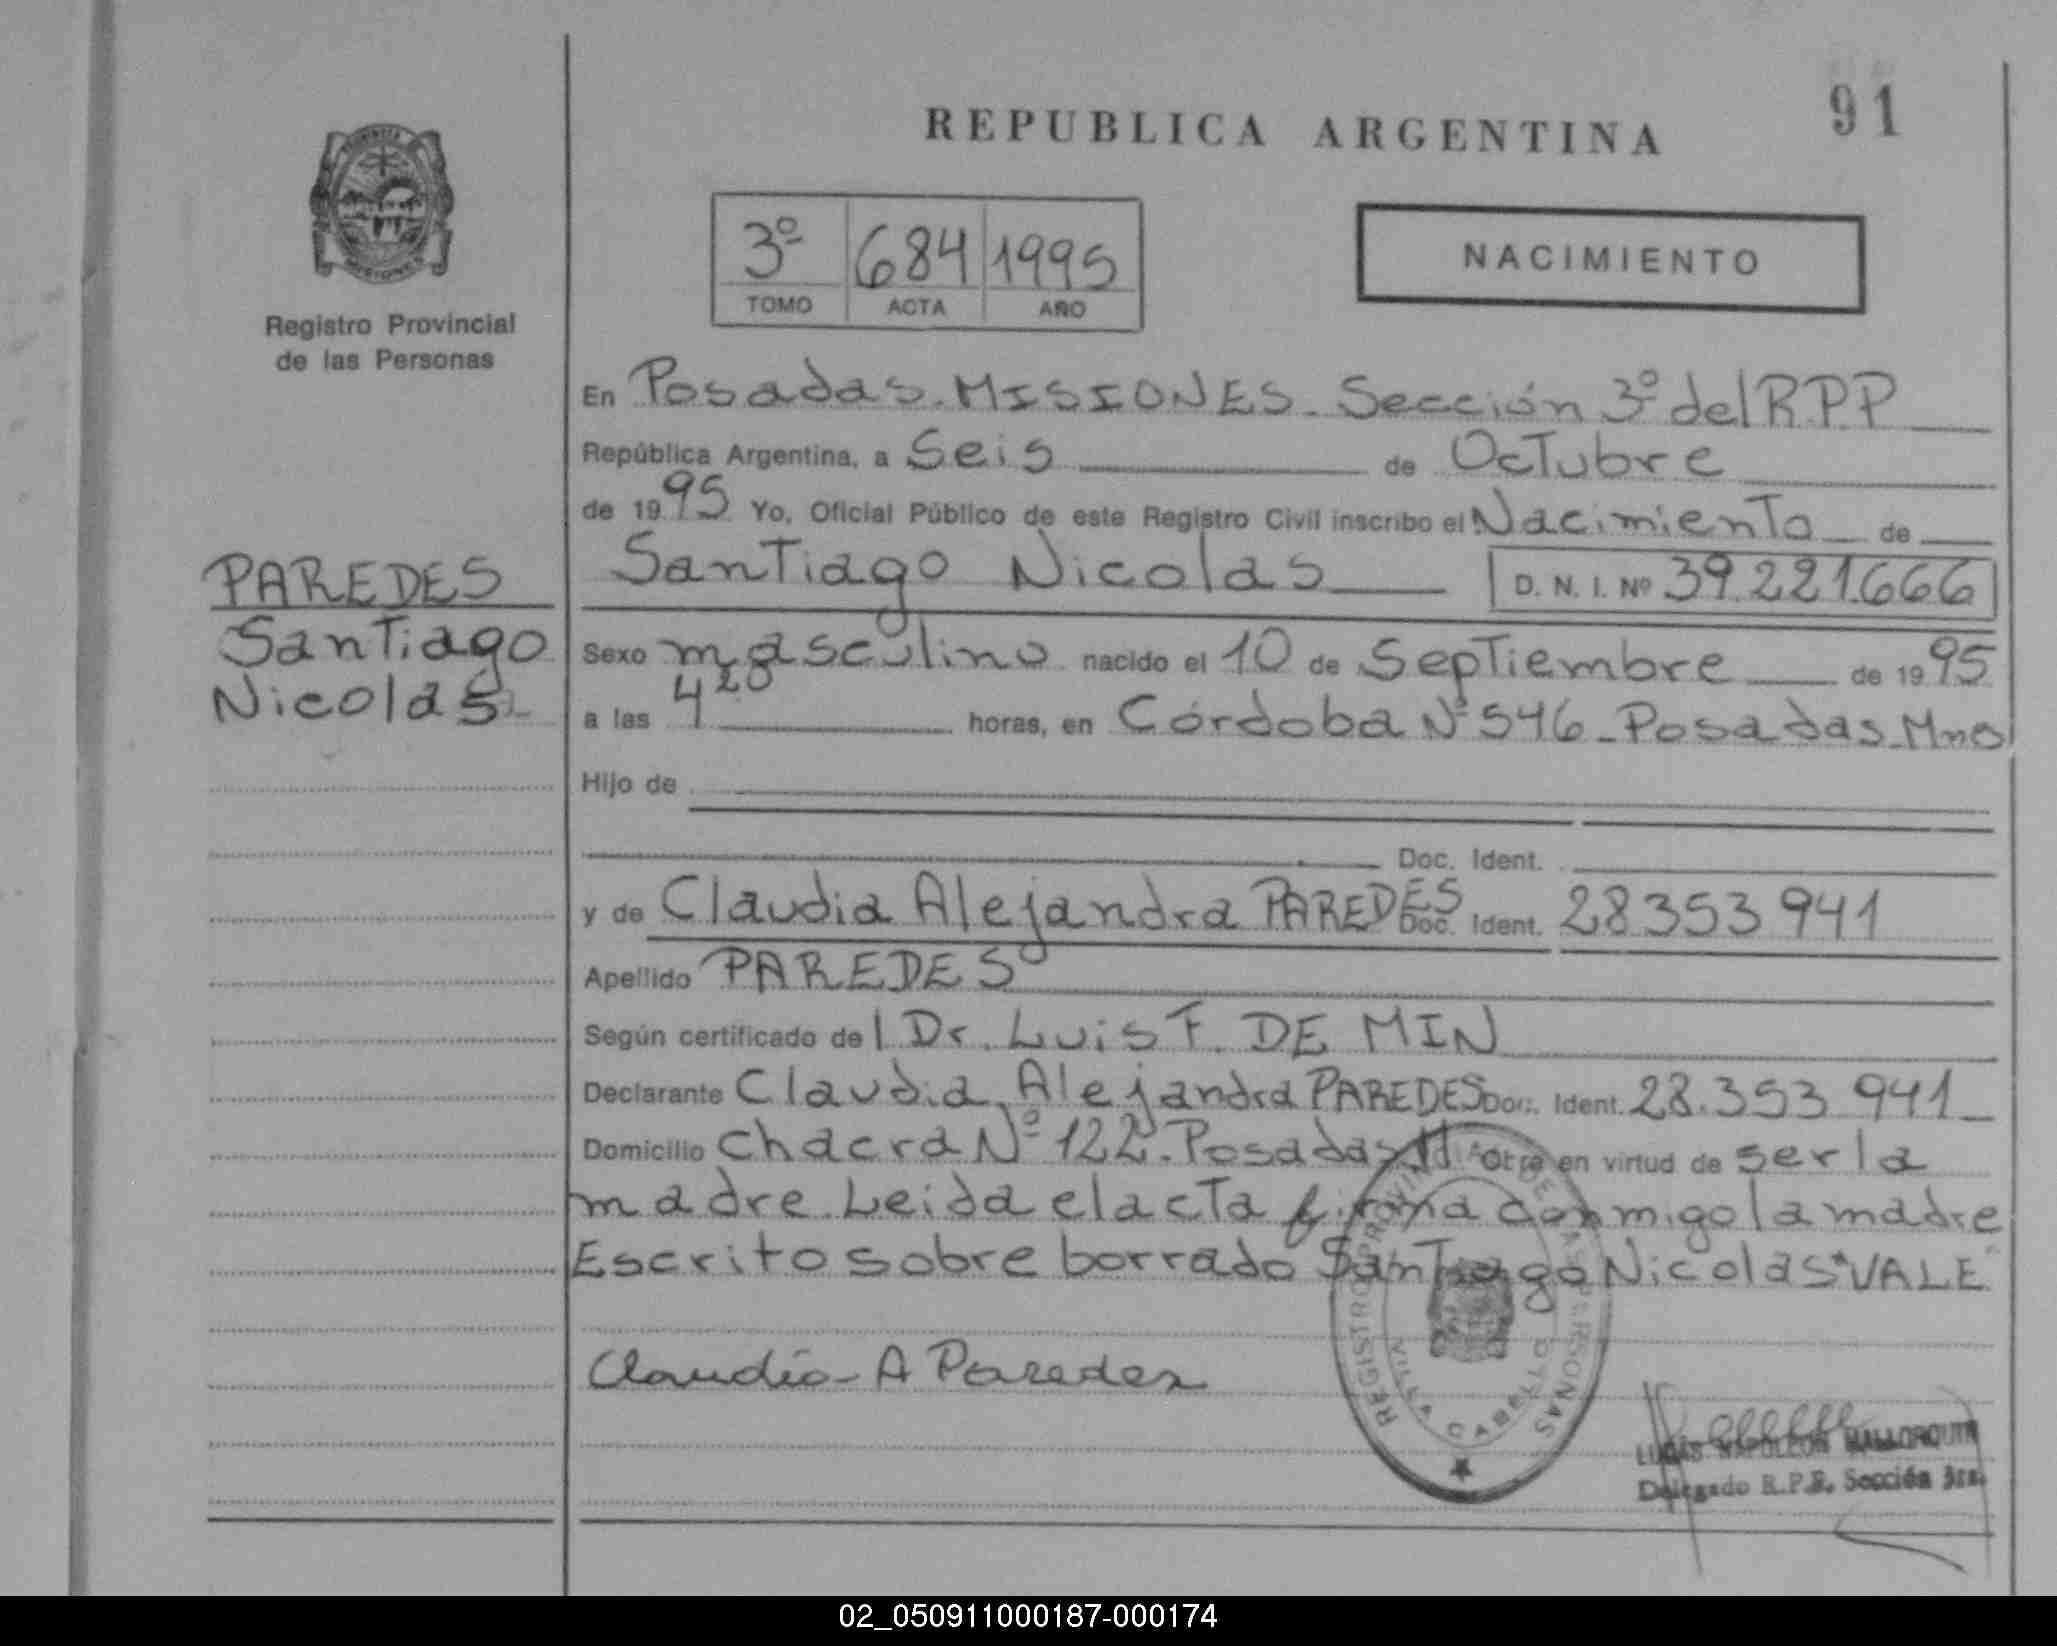 91
REPUBLICA ARGENTINA
3º 684 1995
TOMO ACTA AÑO
NACIMIENTO
Registro Provincial
de las Personas
En Posadas. MISIONES. Sección 3º del R.P.P
República Argentina, a Seis de Octubre
de 1995 Yo, Oficial Público de este Registro Civil inscribo el Nacimiento de
Santiago Nicolas D. N. I. Nº 39.221.666
PAREDES
Santiago
Nicolas
Sexo masculino nacido el 10 de Septiembre de 1995
a las 4 20 horas, en Córdoba Nº 546 - Posadas - Mnes
Hijo de
Doc. Ident.
y de Claudia Alejandra PAREDES Doc. Ident. 28353 941
Apellido PAREDES
Según certificado de l Dr. Luis F. DE MIN
Declarante Claudia Alejandra PAREDES Doc. Ident. 28.353 941
Domicilio Chacra Nº 122. Posadas en virtud de ser la
madre. Leida el acta firma conmigo la madre
Escrito sobre borrado Santiago Nicolas "VALE"
Claudia A Paredes
REGISTRO PROVINCIAL DE LAS PERSONAS
VILLA CABELLO
LUCAS NAPOLEON MALLORQUIN
Delegado R.P.P. Sección 3ra.
02_050911000187-000174